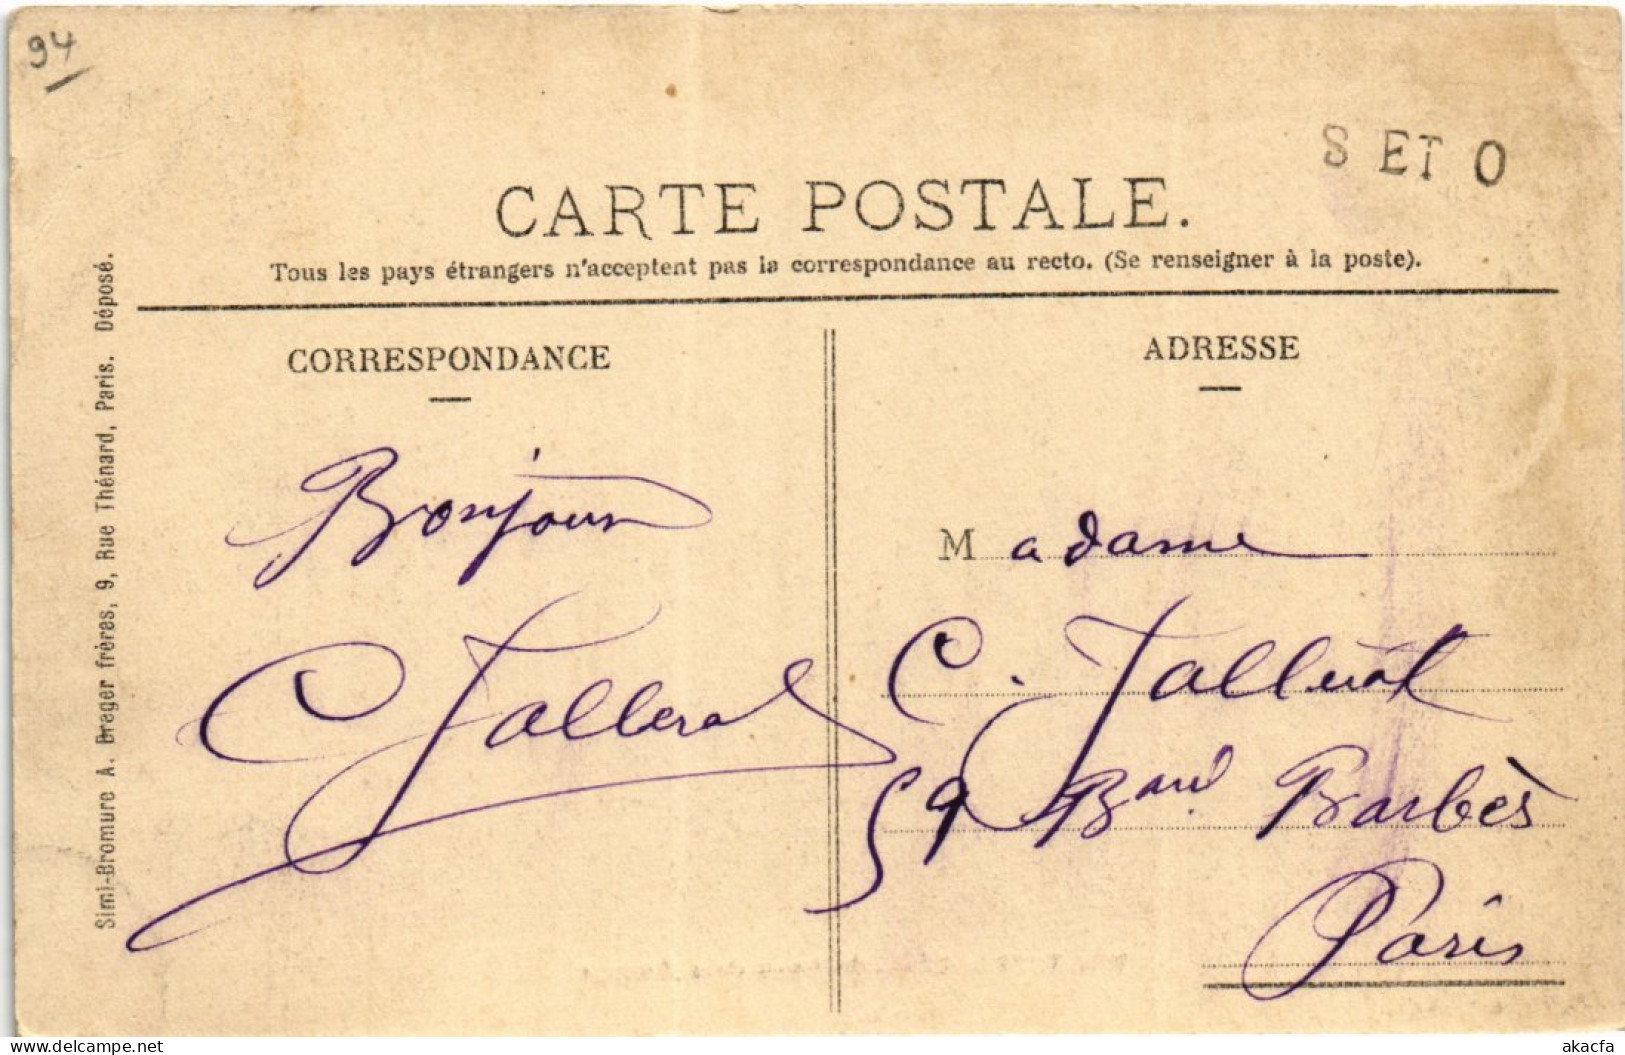 94
S ET O
CARTE POSTALE.
Tous les pays étrangers n'acceptent pas la correspondance au recto. (Se renseigner à la poste).
Simi-Bromure A. Breger frères, 9, Rue Thénard, Paris. Déposé.
CORRESPONDANCE
Bonjour
C
ADRESSE
Madame
C.
59 Bard Barbès
Paris
delcampe.net
akacfa